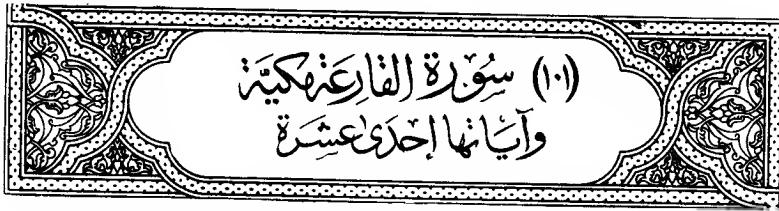 (١٠١) سُورَة القَارِعَة مَكيَّة
وَآيَاتهَا إحْدَى عَشَرَة